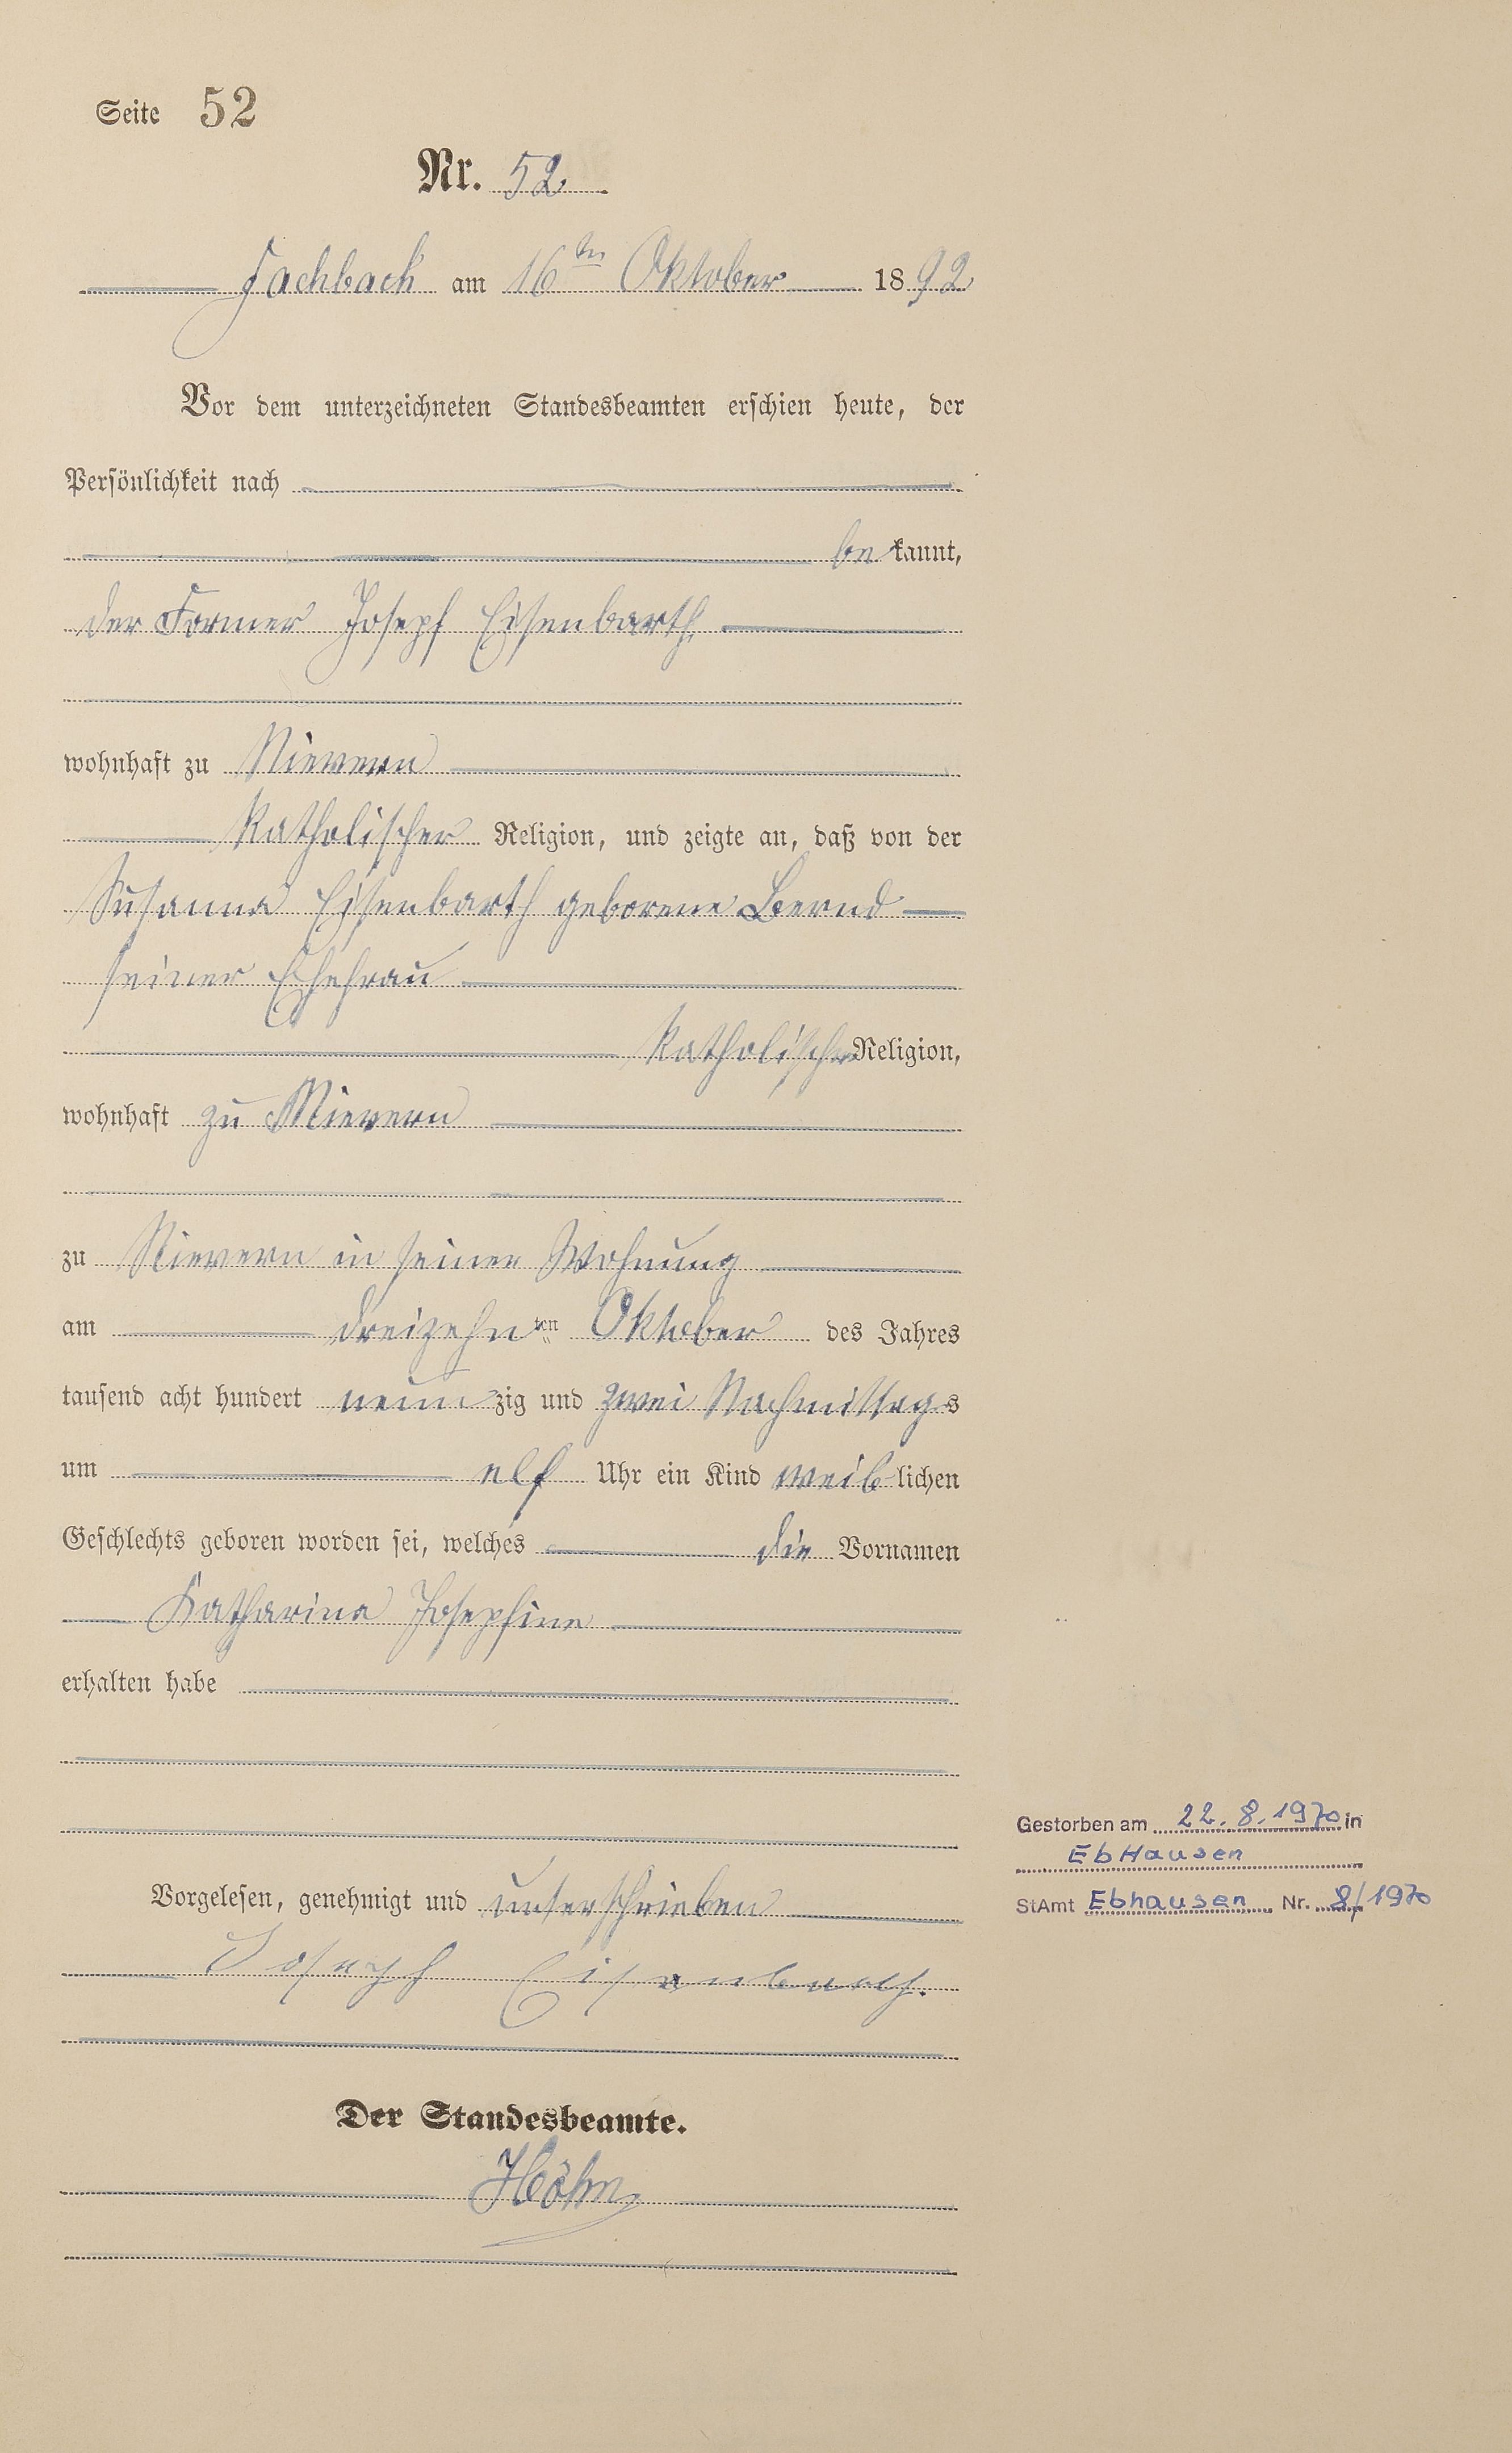 Seite 52
Nr. 52.
Fachbach am 16ten Oktober 1892
Vor dem unterzeichneten Standesbeamten erschien heute, der
Persönlichkeit nach
bekannt,
der Former Joseph Eisenbarth
wohnhaft zu Nievern
katholischer Religion, und zeigte an, daß von der
Susanna Eisenbarth geborene Bernd
seiner Ehefrau
katholischer Religion,
wohnhaft zu Nievern
zu Nievern in seiner Wohnung
am dreizehnten Oktober des Jahres
tausend acht hundert neunzig und zwei Nachmittags
um elf Uhr ein Kind weiblichen
Geschlechts geboren worden sei, welches die Vornamen
Katharina Josephine
erhalten habe
Gestorben am 22.8.1970 in
EbHausen
StAmt Ebhausen Nr. 8/1970
Vorgelesen, genehmigt und unterschrieben
Joseph Eisenbarth.
Der Standesbeamte.
Höhn